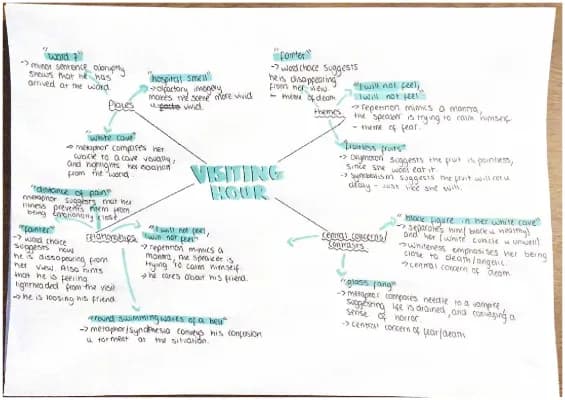 "ward 7"
→ minor sentence abruptly
shows that he has
arrived at the ward.
"hospital smell"
→ olfactory imagery
makes the scene more vivid
vivid.
places
"white cave"
→ metaphor compares her
cubicle to a cave visually,
and highlights her isolation
from the world.
"fainter"
→ word choice suggests
he is disappearing
from her view
- theme of death.
"I will not feel,
I will not feel"
→ repetition mimics a mantra,
the speaker is trying to calm himself.
- theme of fear.
themes
"fruitless fruits"
→ oxymoron suggests the fruit is pointless,
since she wont eat it.
→ symbolism suggests the fruit will
decay - just like she will.
VISITING
HOUR
"distance of pain"
metaphor suggests that her
illness prevents them from
being emotionally close.
relationships
"fainter"
→ word choice
suggests how
he is dissapearing from
her view. Also hints
that he is feeling
lightheaded from the visit.
→ he is loosing his friend.
"I will not feel,
I will not feel"
→ repetition mimics a
mantra, the speaker is
trying to calm himself.
→ he cares about his friend.
"round swimming waves of a bell"
→ metaphor/synthesia conveys his confusion
& torment as the situation.
central concerns/
contrasts
"black figure in her white cave"
→ separates him (black & healthy)
and her (white cubicle & unwell)
→ whiteness emphasises her being
close to death/angelic
→ central concern of death
"glass fang"
→ metaphor compares needle to a vampire,
suggesting life is drained, and conveying a
sense of horror.
→ central concern of fear/death